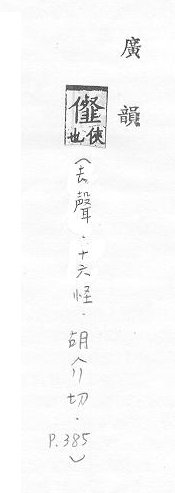 廣韻
俠也
(去聲．十六怪．胡介切．P.385)